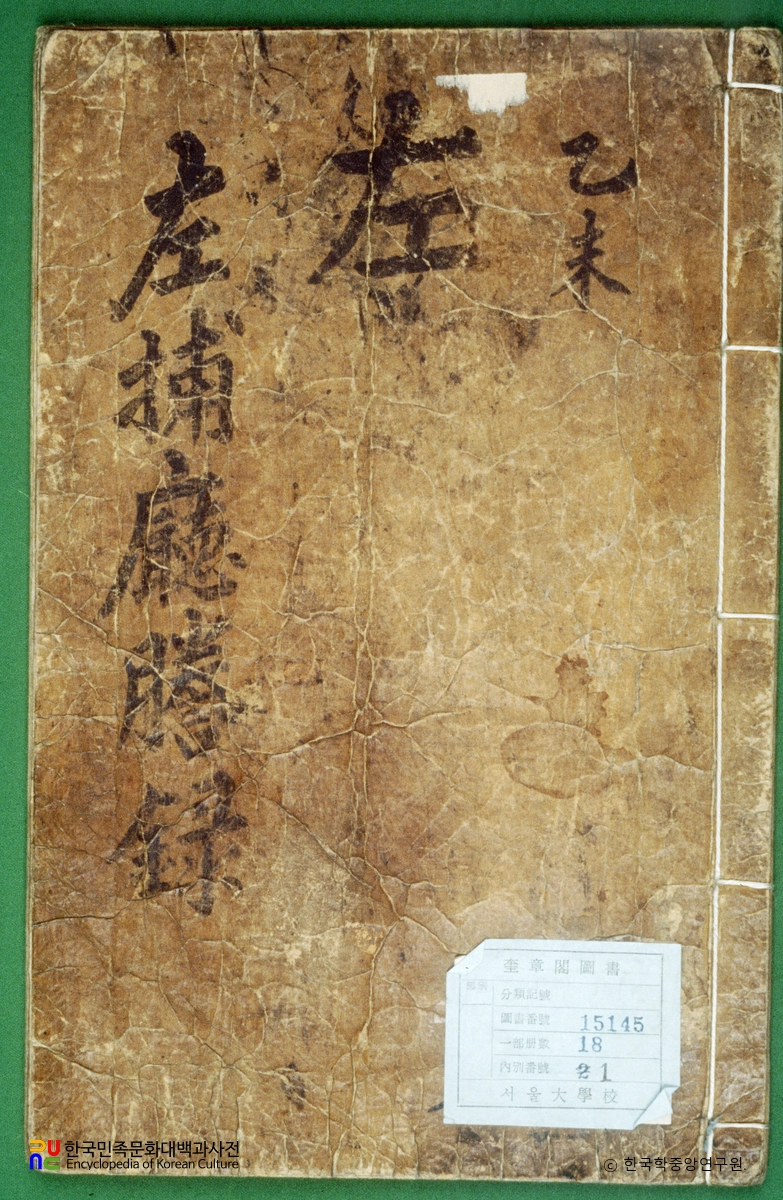 乙未
左
左捕廳謄録
奎章閣圖書
部別
分類記號
圖書番號 15145
一部冊數 18
內別番號 1
서울大學校
한국민족문화대백과사전
Encyclopedia of Korean Culture
© 한국학중앙연구원